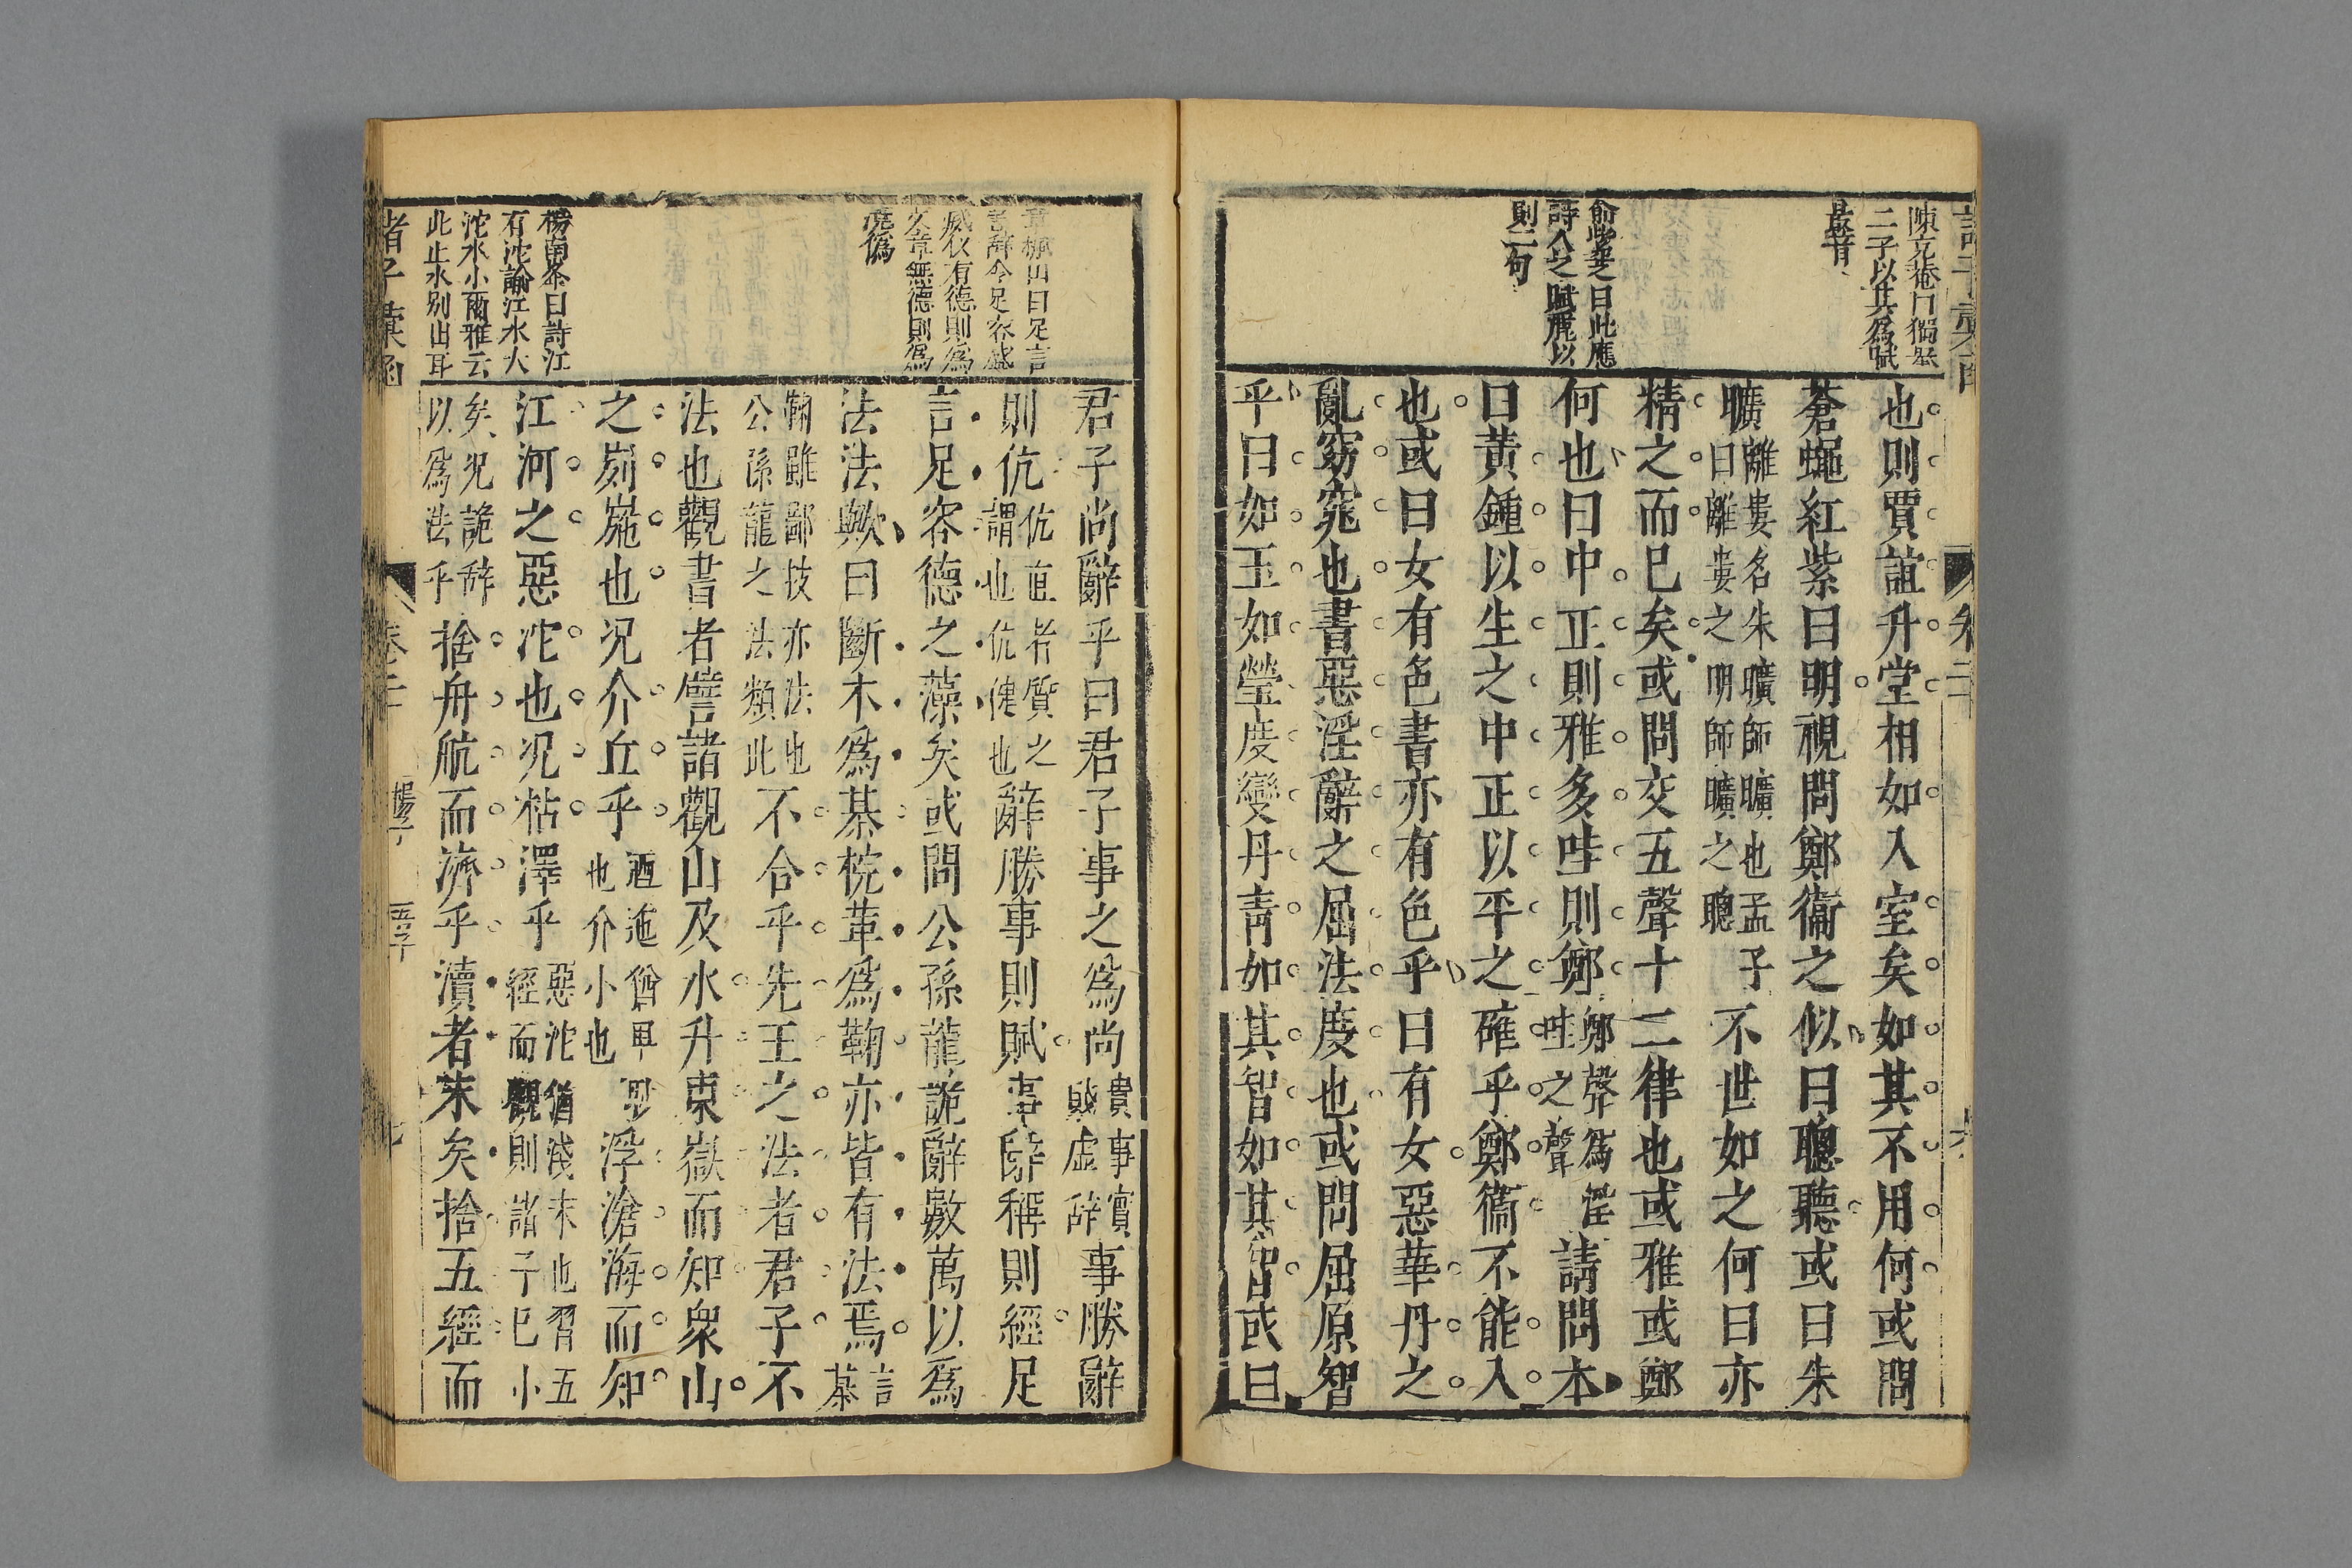 二子以其爲賦
最音
俞
詩人之賦麗以
則二句
也則賈誼升堂相如入室矣如其不用何或問
蒼蠅紅紫曰明視問鄭衞之似曰聰聽或曰朱
曠
離婁名朱曠師曠也孟子
曰離婁之明師曠之聰
不世如之何曰亦
精之而已矣或問交五聲十二律也或雅或鄭
何也曰中正則雅多哇則鄭
鄭聲爲淫
哇之聲
請問本
曰黃鍾以生之中正以平之確乎鄭衞不能入
也或曰女有色書亦有色乎曰有女惡華丹之
亂窈窕也書惡淫辭之屈法度也或問屈原智
乎曰如玉如瑩度變丹靑如其智如其智或曰
君子尚辭乎曰君子事之爲尚
貴事實
賤虛辞
事勝辭
則伉
伉直者質之
謂也伉健也
辭勝事則賦事辭稱則經足
言足容德之藻矣或問公孫龍詭辭數萬以爲
法法歟曰斷木爲棊梡革爲鞠亦皆有法焉
言
棊
鞠雖鄙技亦法也
公孫龍之法類此
不合乎先王之法者君子不
法也觀書者譬諸觀山及水升東嶽而知衆山
之峛崺也况介丘乎
也介小也
浮滄海而知
江河之惡沱也况枯澤乎
惡沱猶淺末也習五
經而觀則諸子巳小
矣况詭辞
以爲法乎
捨舟航而濟乎瀆者末矣捨五經而
威仪有德則爲
文章無德則爲
虎僞
楊南峯曰詩江
有沱論江水大
沱水小爾雅云
此止水别出耳
諸子彙函
卷二十
楊子
七